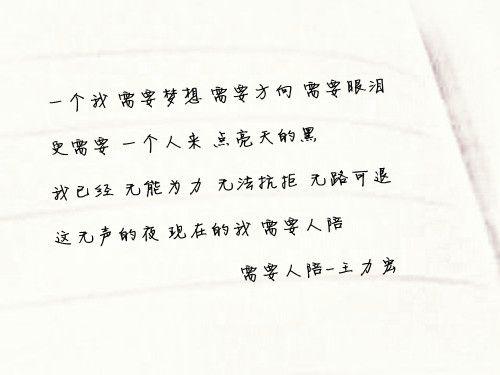 一个我 需要梦想 需要方向 需要眼泪
更需要 一个人来 点亮天的黑
我已经 无能为力 无法抗拒 无路可退
这无声的夜 现在的我 需要人陪
需要人陪-王力宏